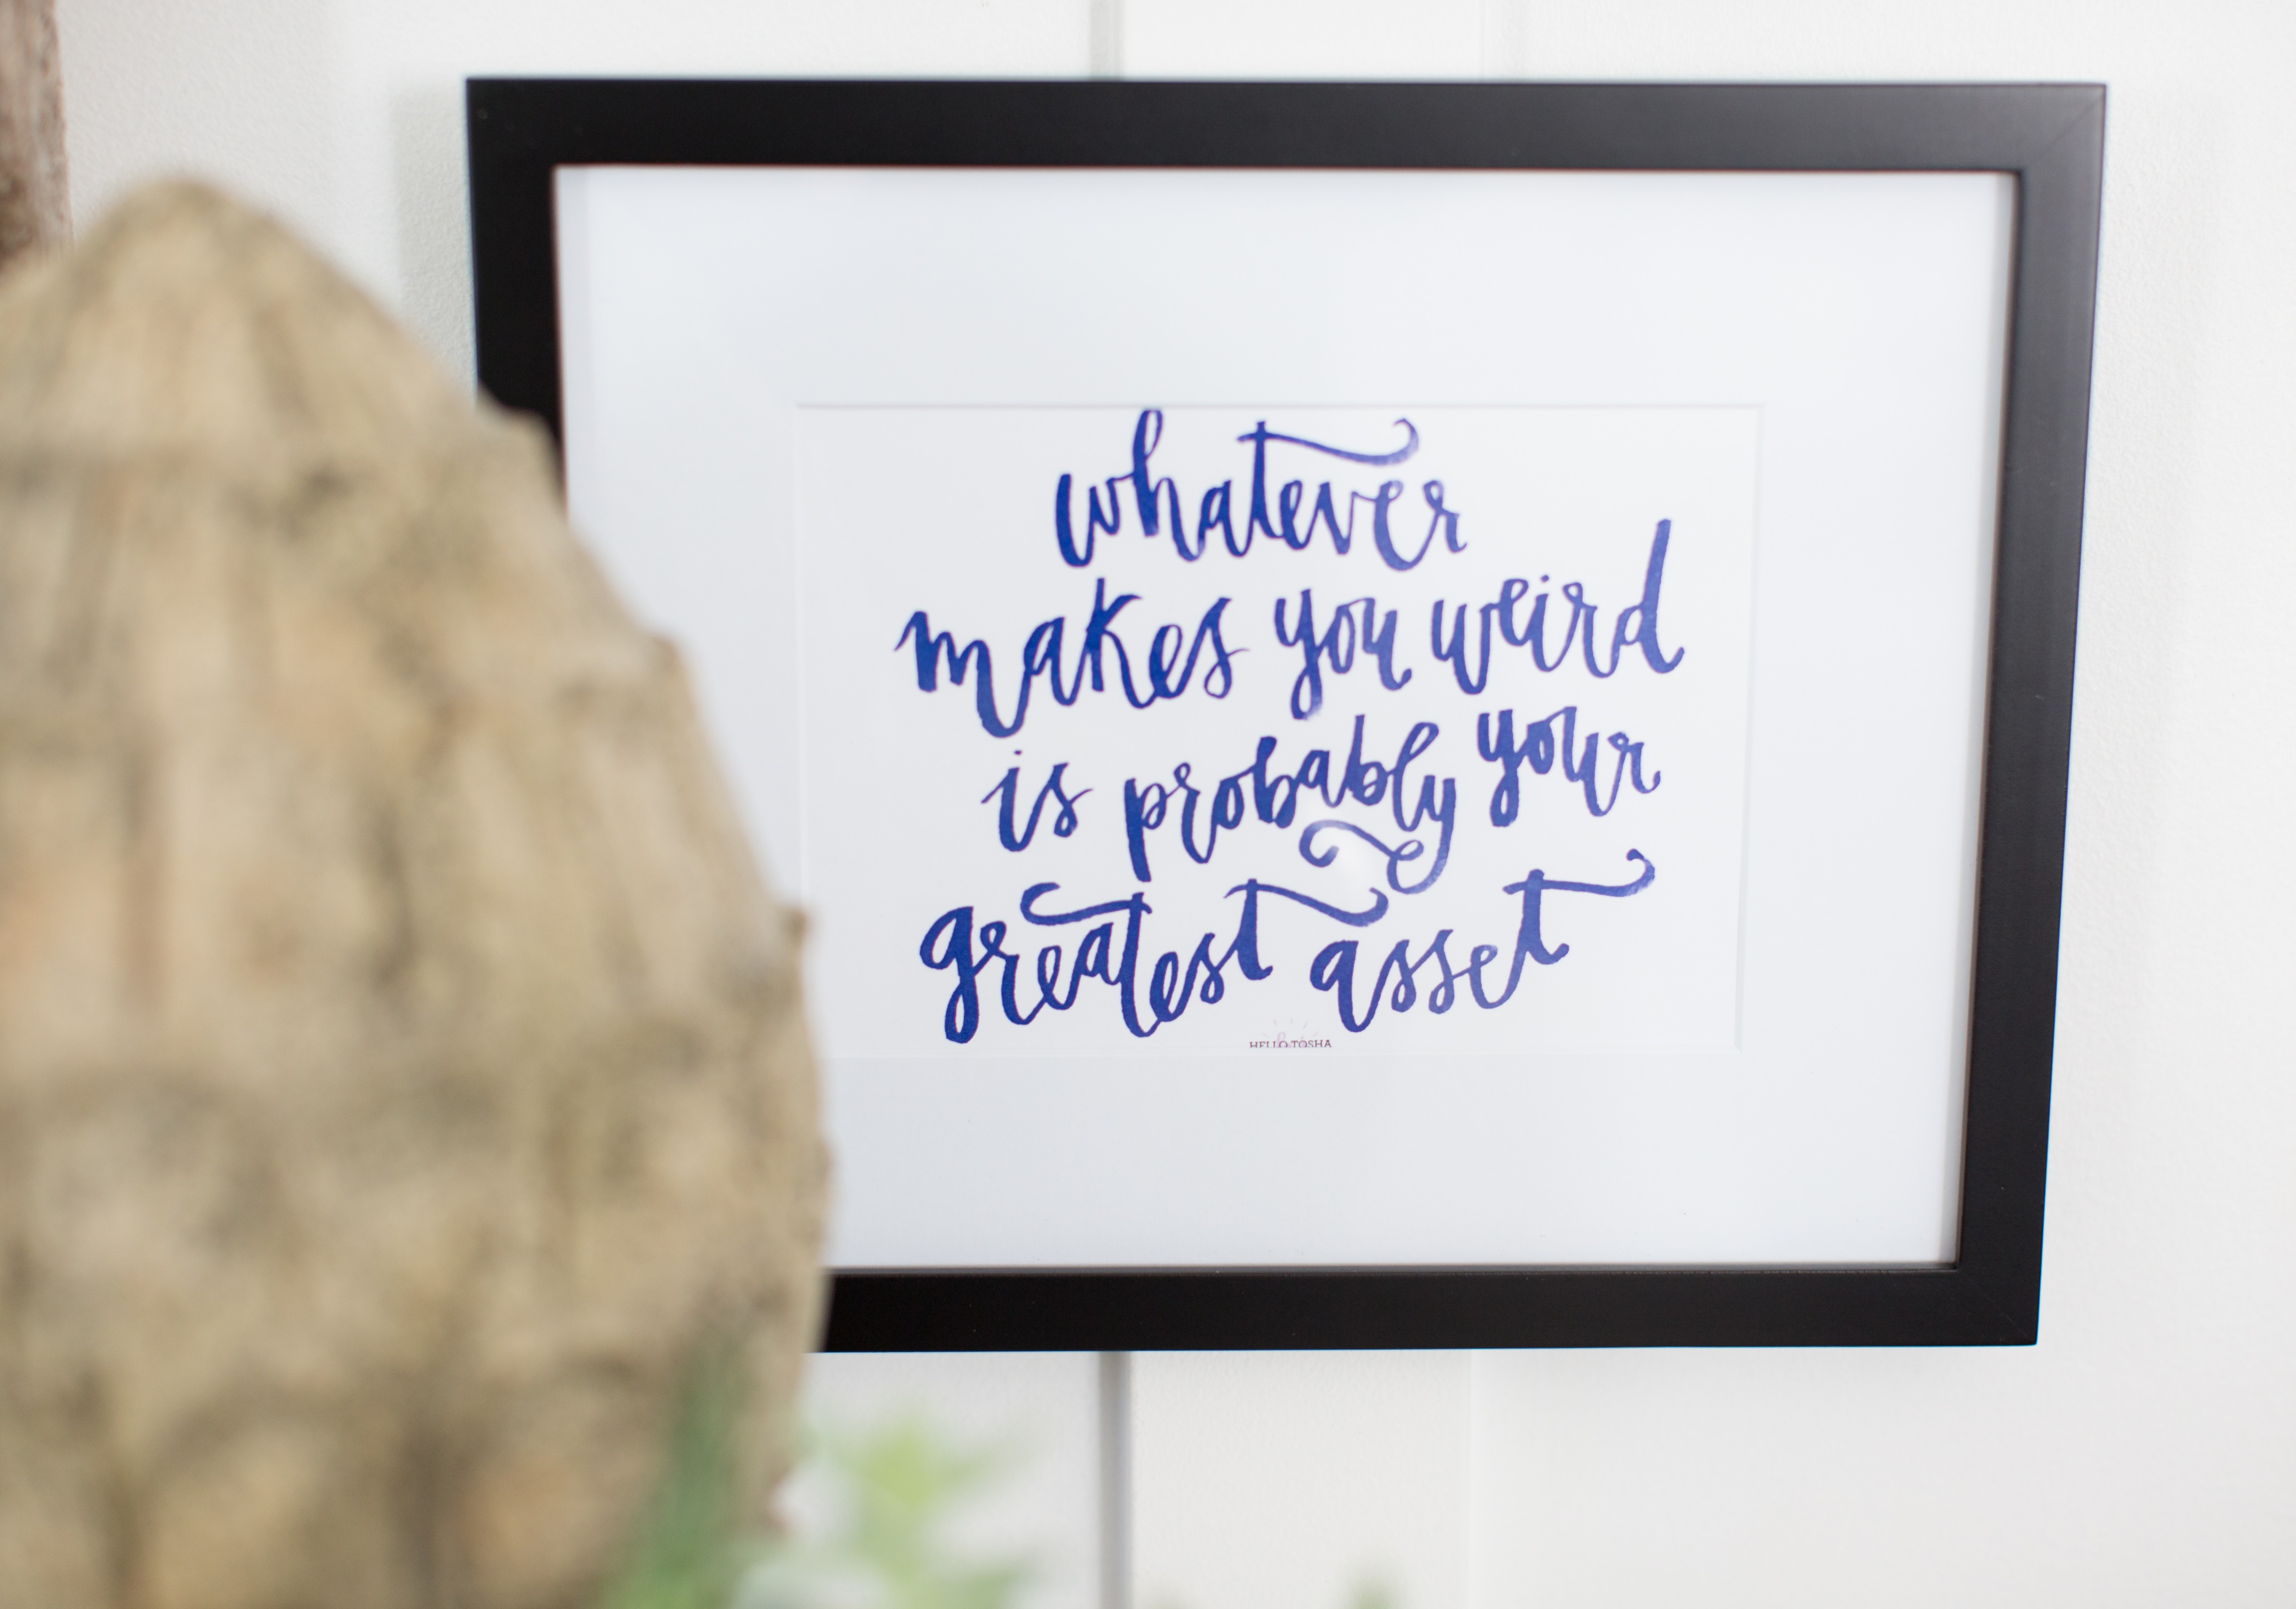 whatever
makes you weird
is probably your
greatest asset
HELLO TOSHA